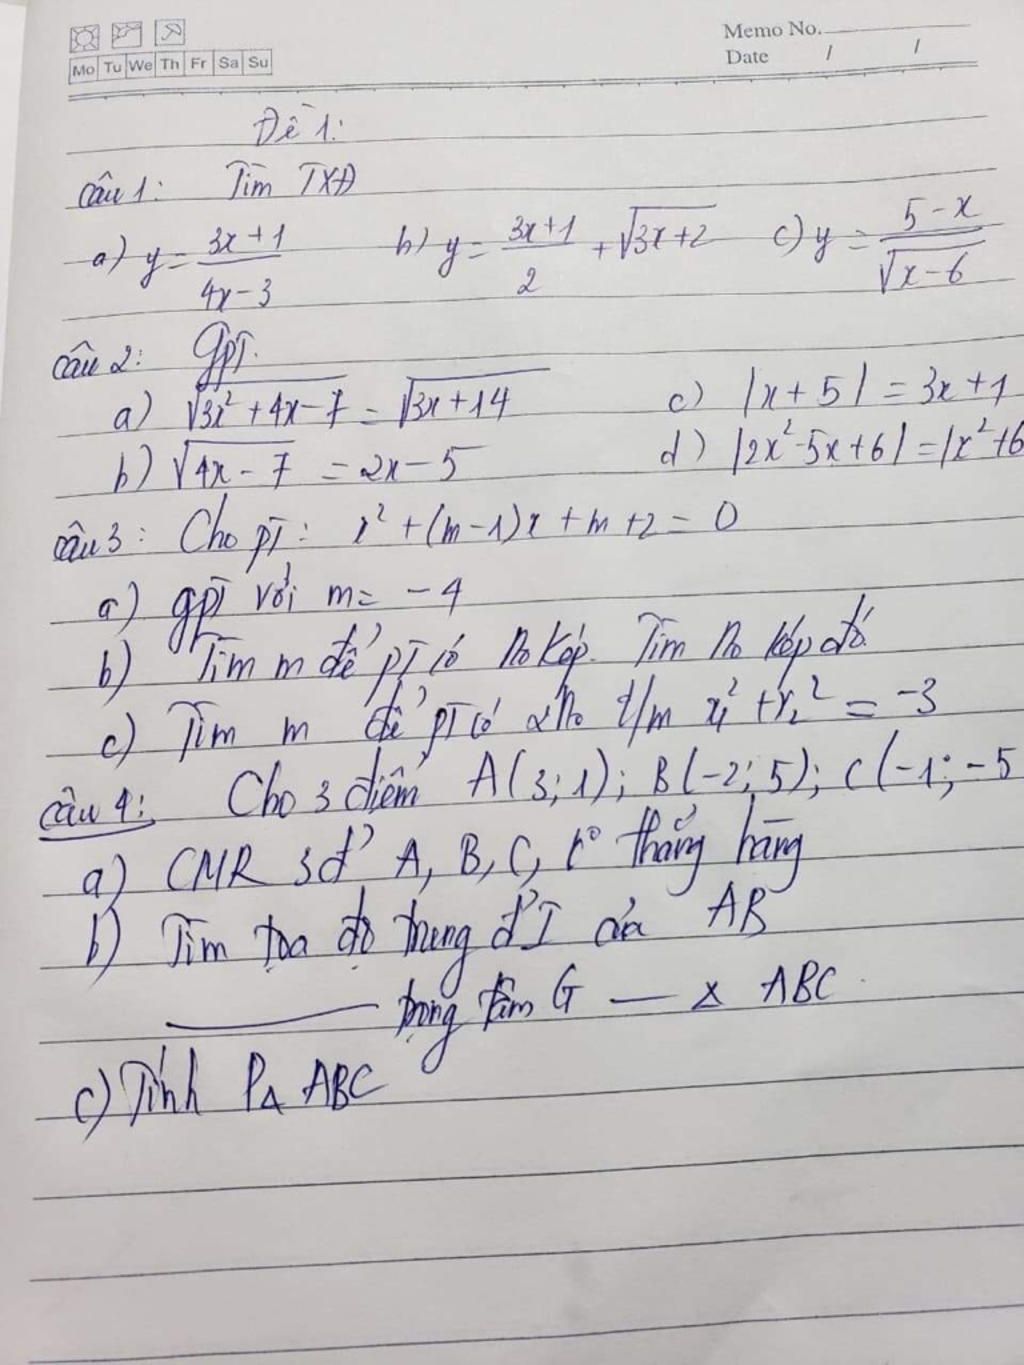 Memo No.
Mo Tu We Th Fr Sa Su
Date / /
Đề 1:
Câu 1: Tìm TXĐ
a) y = (3x+1)/(4x-3) b) y = (3x+1)/2 + √(3x+2) c) y = (5-x)/√(x-6)
Câu 2: gpT.
a) √(3x²+4x-7) = √(3x+14) c) |x+5| = 3x+1
b) √(4x-7) = 2x-5 d) |2x²-5x+6| = |x²+6
Câu 3: Cho pT: x²+(m-1)x+m+2=0
a) gpT với m = -4
b) Tìm m để pT có no kép. Tìm no kép đó.
c) Tìm m để pT có 2no t/m x₁²+x₂² = -3
Câu 4: Cho 3 điểm A(3;1); B(-2;5); C(-1;-5
a) CMR 3đ' A, B, C, k° thẳng hàng
b) Tìm tọa độ trung đ' I của AB
trọng tâm G — Δ ABC.
c) Tính PΔ ABC